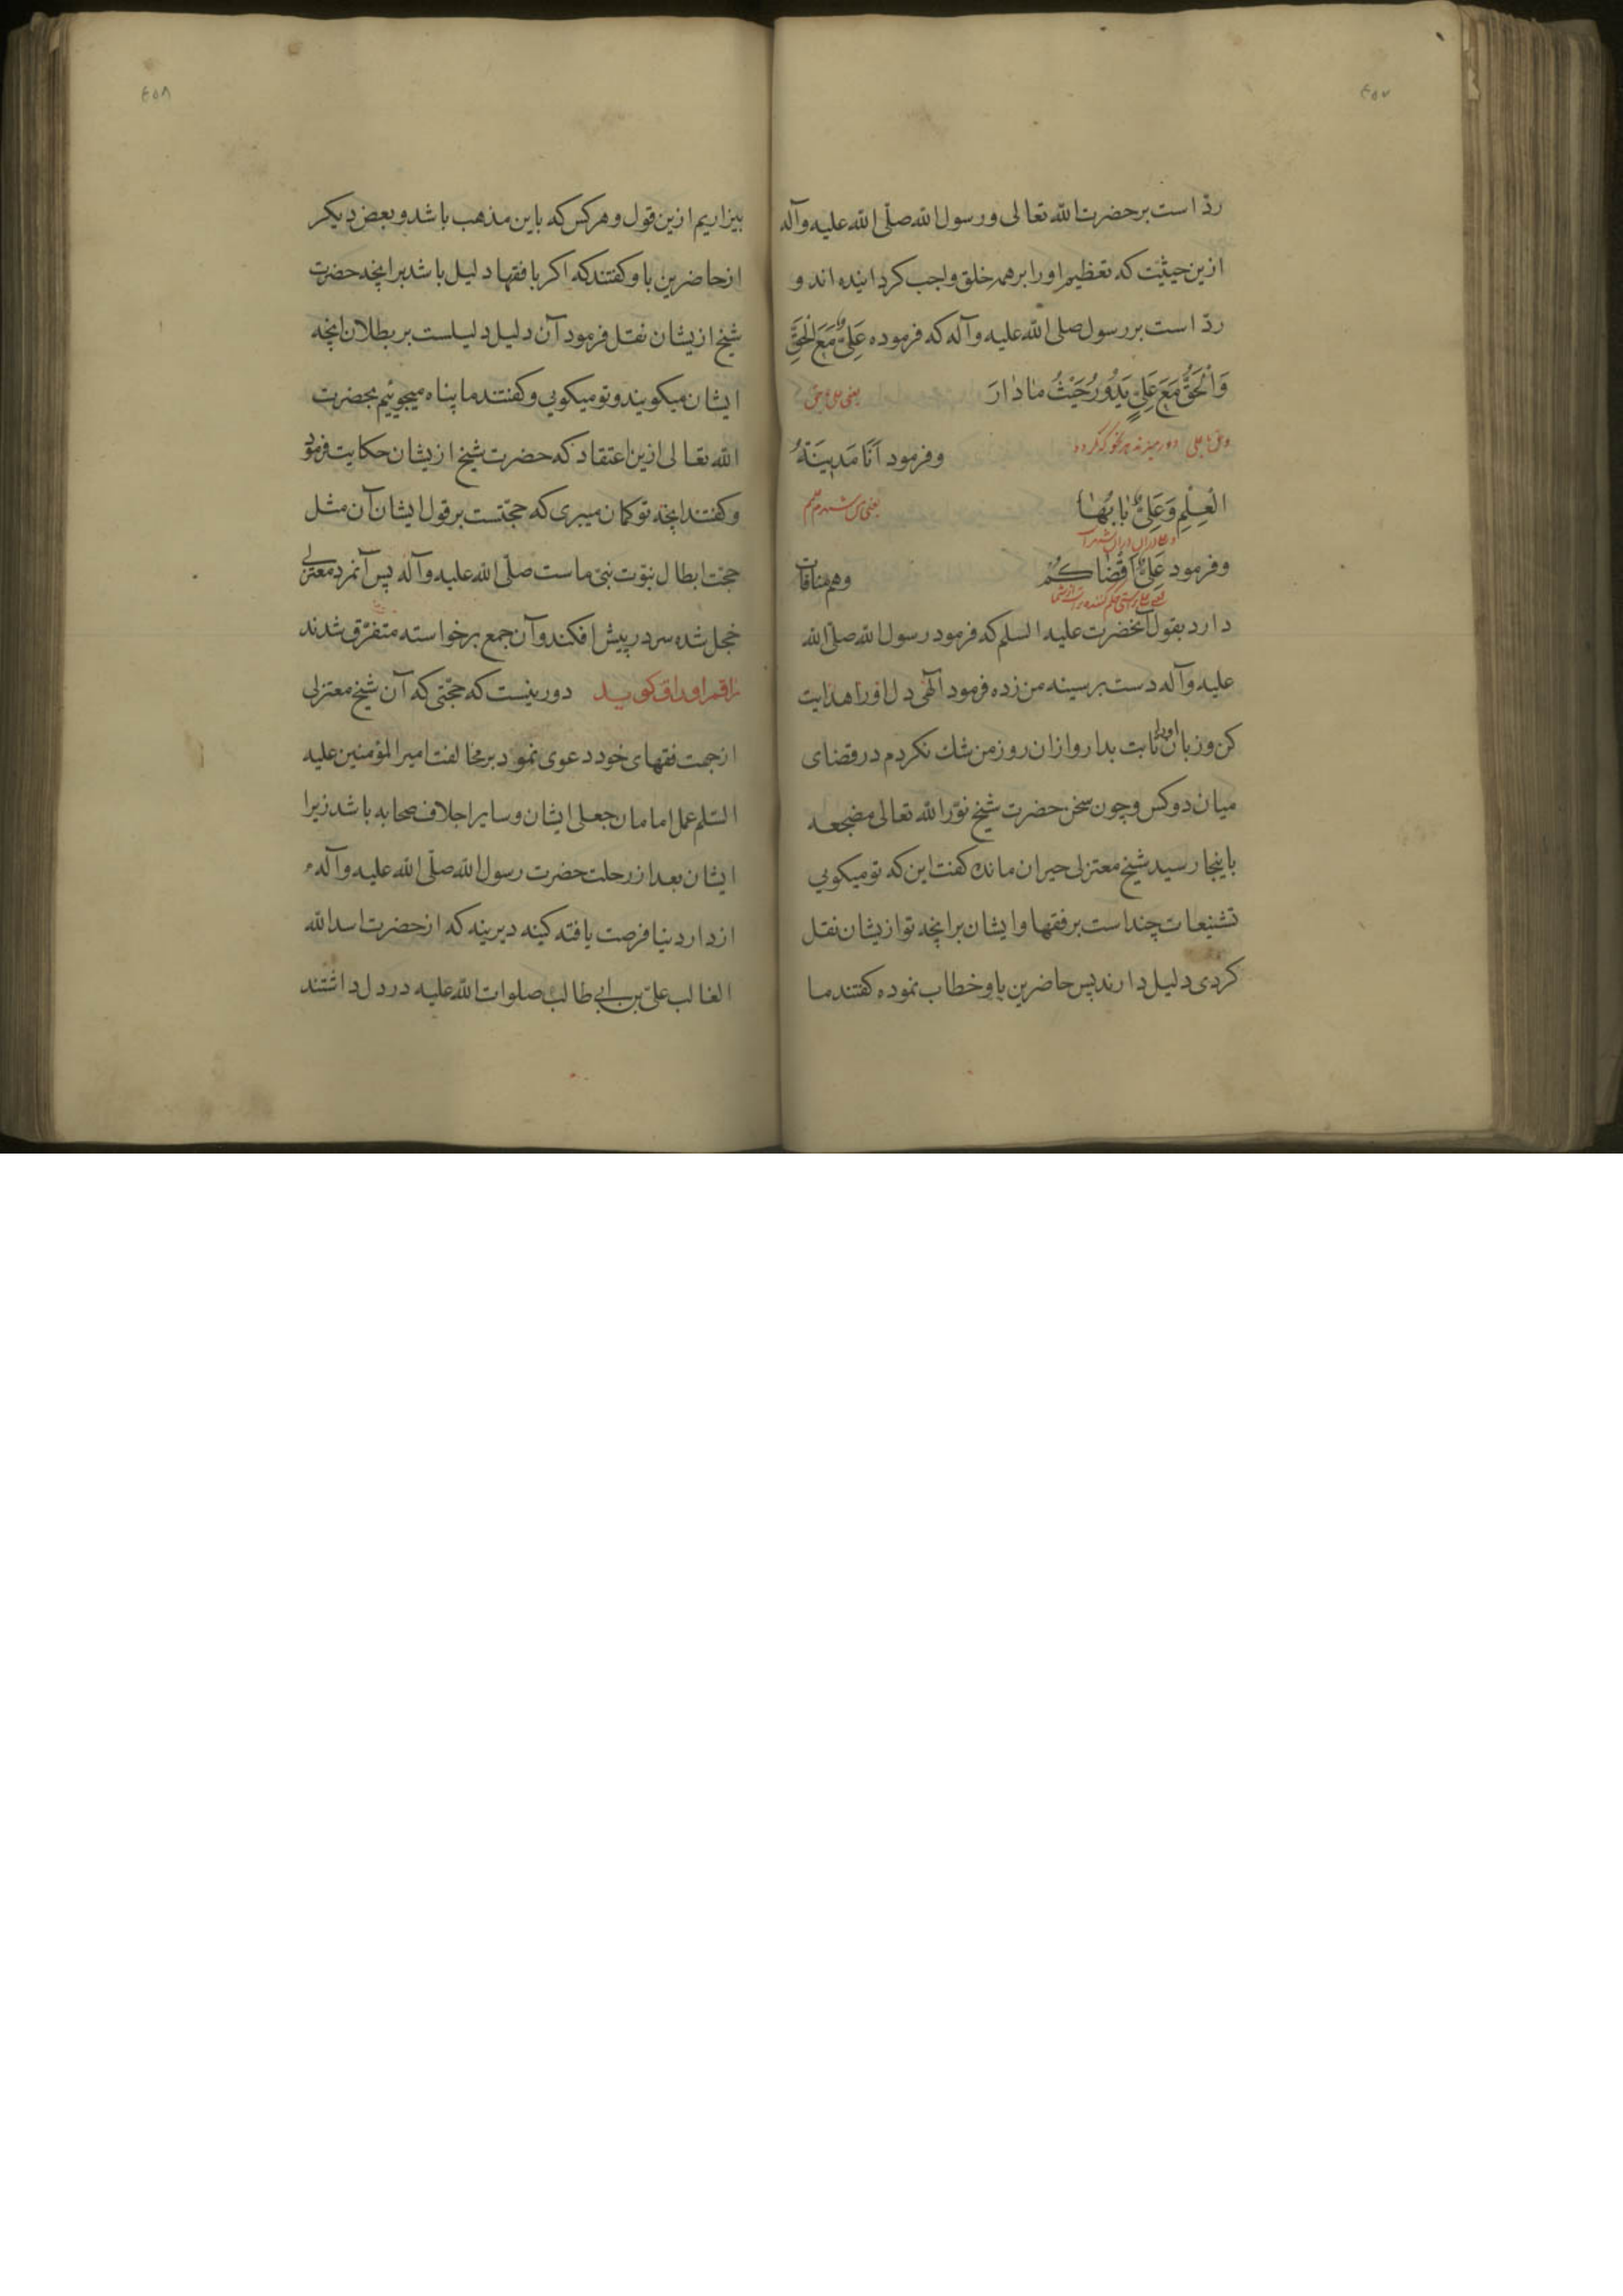 ٤٥٧
ردّ است بر حضرت الله تعالی و رسول الله صلّی الله علیه وآله
ازین حیثیت که تعظیم او را بر همه خلق واجب کردانیده اند و
ردّ است بر رسول صلی الله علیه وآله که فرموده عَلِیٌّ مَعَ الْحَقِّ
وَالْحَقُّ مَعَ عَلِیٍّ یَدُورُ حَیْثُ مٰا دٰارَ یعنی علی با حق
وحق با علی دور میزند هر نحو که کردد وفرمود اَنَا مَدینَةُ
الْعِلْمِ وَعَلِیٌّ بٰابُهٰا یعنی من شهر علمم
وفرمود عَلِیٌّ اَقْضٰاکُمْ وهم منافات
دارد بقول آنحضرت علیه السلم که فرمود رسول الله صلی الله
علیه وآله دست بر سینه من زده فرمود آلهی دل او را هدایت
کن وزبان او را ثابت بدار وازان روز من شك نکردم در قضای
میان دو کس وچون سخن حضرت شیخ نوّر الله تعالی مضجعه
باینجا رسید شیخ معتزلی حیران مانده کفت این که تو میکویی
تشنیعات چند است بر فقها وایشان بر آنچه تو ازیشان نقل
کردی دلیل دارند پس حاضرین باو خطاب نموده کفتند ما
٤٥٨
بیزاریم ازین قول وهر کس که باین مذهب باشد وبعض دیکر
از حاضرین باو کفتند که اکر با فقها دلیل باشد بر انچه حضرت
شیخ ازیشان نقل فرمود آن دلیل دلیلست بر بطلان انچه
ایشان میکویند وتو میکویی وکفتند ما پناه میجوئیم بحضرت
الله تعالی ازین اعتقاد که حضرت شیخ ازیشان حکایت فرمود
وکفتند انچه تو کمان میبری که حجّتست بر قول ایشان آن مثل
حجت ابطال نبوّت نبیّ ماست صلّی الله علیه وآله پس آنمرد معتزلی
خجل شده سر در پیش افکند وآن جمع برخواسته متفرّق شدند
راقم اوراق کوید دور نیست که حجّتی که آن شیخ معتزلی
از جهت فقهای خود دعوی نمود بر مخالفت امیر المؤمنین علیه
السّلم عمل امامان جعلی ایشان وسایر اجلاف صحابه باشد زیرا
ایشان بعد از رحلت حضرت رسول الله صلّی الله علیه وآله
از دار دنیا فرصت یافته کینه دیرینه که از حضرت اسد الله
الغالب علیّ بن ابی طالب صلوات الله علیه در دل داشتند